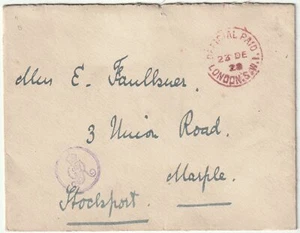 OFFICIAL PAID
23 DE
28
LONDON.S.W.1.
Mrs E. Faulkner.
3 Union Road.
Marple.
Stockport.